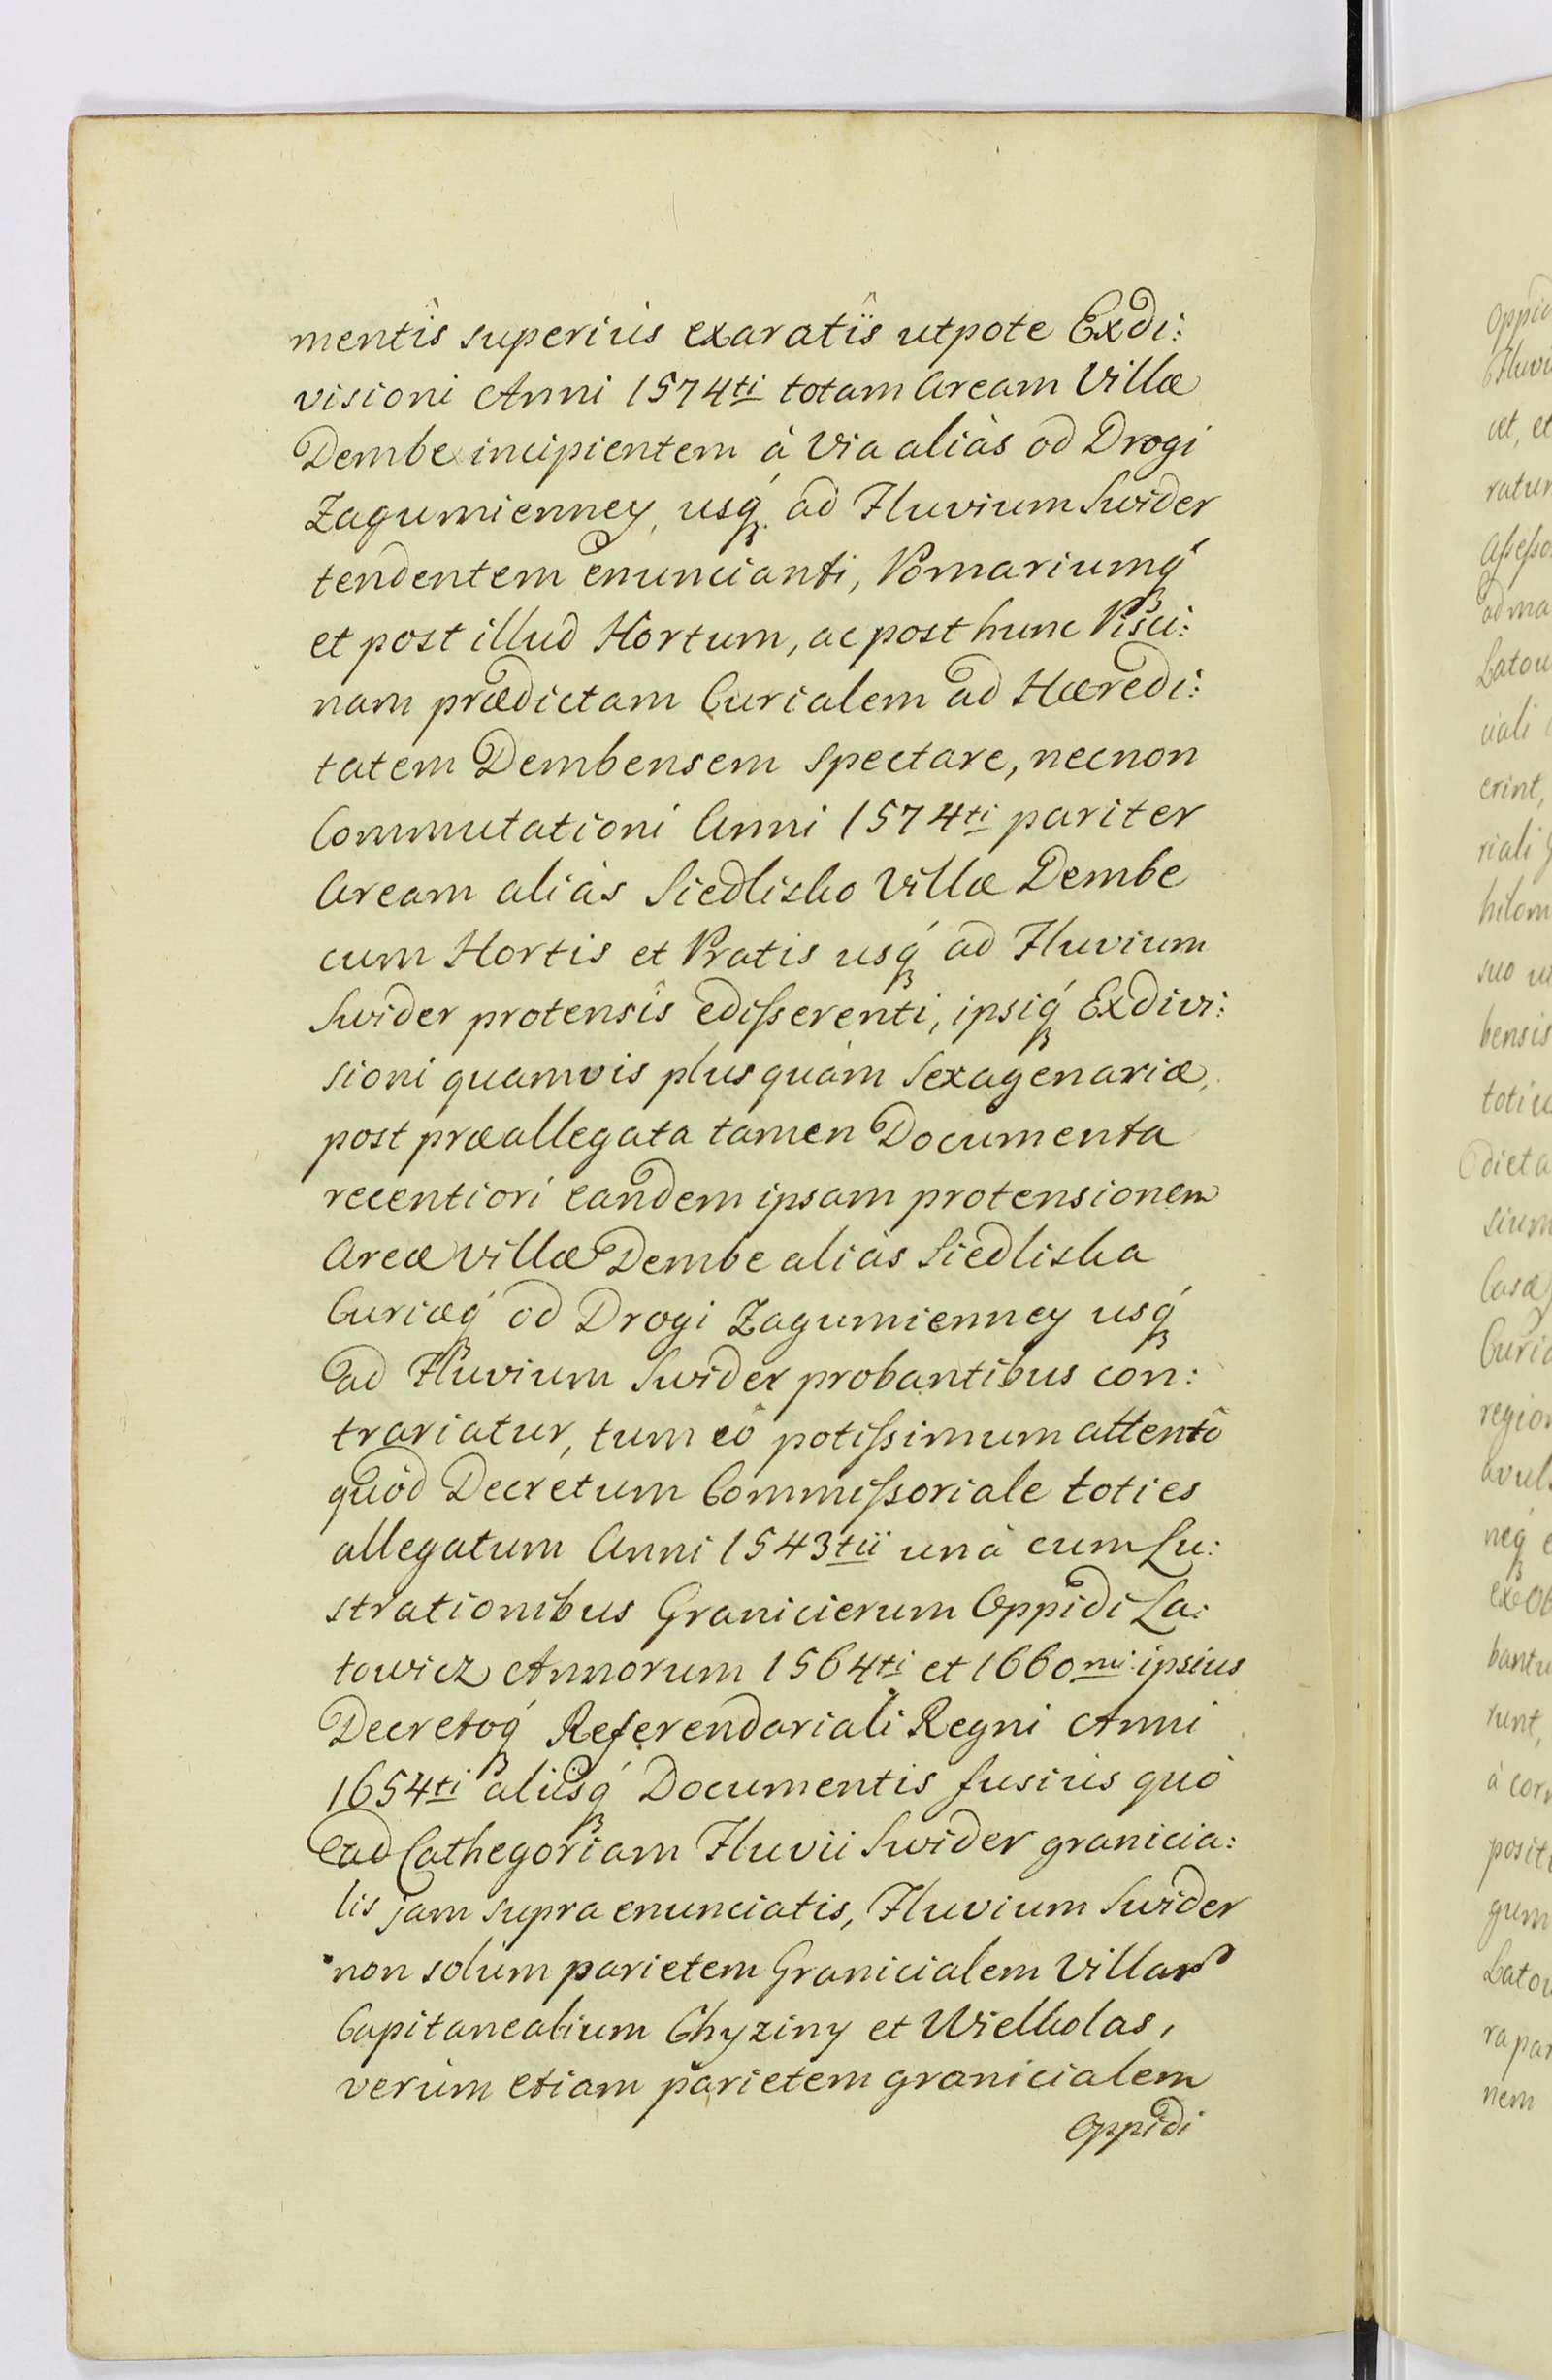 mentîs superiùs exaratîs utpote Exdi:
visioni Anni 1574ti totam Aream Villæ
Dembe incipientem à Via aliàs od Drogi
Zagumienney, usq́ꝫ ad Fluvium Swider
tendentem enuncianti, Pomariumq́ꝫ
et post illud Hortum, ac post hunc Pisci:
nam prædictam Curialem ad Hæredi:
tatem Dembensem spectare, necnon
Commutationi Anni 1574ti pariter
Aream aliàs Siedlisko Villæ Dembe
cum Hortis et Pratis usq́ꝫ ad Fluvium
Swider protensîs edißerenti, ipsiq́ꝫ Exdivi:
sioni quamvis plusquàm Sexagenariæ,
post præallegata tamen Documenta
recentiori eandem ipsam protensionem
Areæ Villæ Dembe aliàs Siedliska
Curiæq́ꝫ od Drogi Zagumienney usq́ꝫ
ad Fluvium Swider probantibus con:
trariatur, tum eô potißimum attentô
quòd Decretum Commißoriale toties
allegatum Anni 1543tii unà cum Lu:
strationibus Granicierum Oppidi La:
towicz Annorum 1564ti et 1660mi ipsius
Decretoq́ꝫ Referendariali Regni Anni
1654ti aliisq́ꝫ Documentis fusiùs quò
ad Cathegoriam Fluvii Swider granicia:
lis jam supra enunciatis, Fluvium Swider
non solùm parietem Granicialem Villarꝫ
Capitanealium Chyziny et Wielkolas,
verùm etiam parietem granicialem
Oppidi